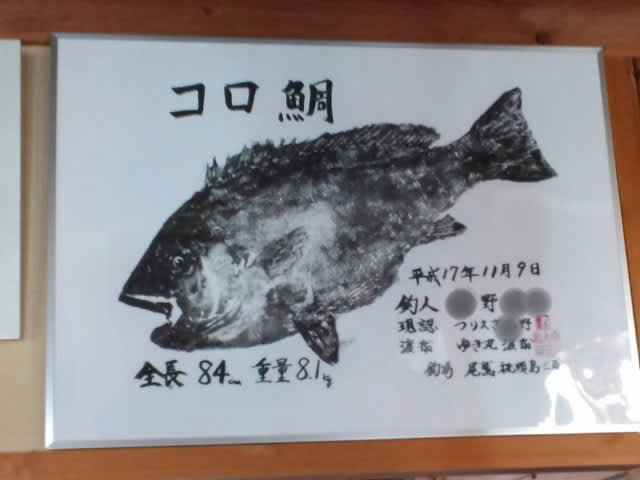 コロ鯛
全長 84cm 重量 8.1kg
平成17年11月9日
釣人 野
現認 つりえさ 野
渡船 ゆき丸渡船
釣場 尾鷲 桃頭島